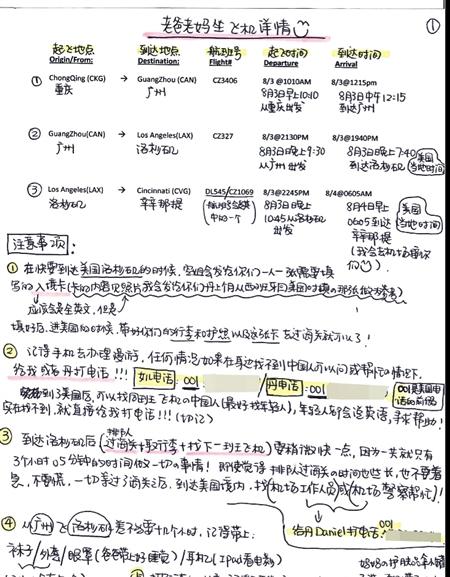 老爸老妈坐飞机详情
①
起飞地点 到达地点 航班号 起飞时间 到达时间
Origin/From: Destination: Flight# Departure Arrival
① ChongQing (CKG) → GuangZhou (CAN) CZ3406 8/3 @1010AM 8/3@1215pm
重庆 广州 8月3日早上10:10 8月3日中午12:15
从重庆出发 到达广州
② GuangZhou(CAN) → Los Angeles(LAX) CZ327 8/3@2130PM 8/3@1940PM
广州 洛杉矶 8月3日晚上9:30 8月3日晚上7:40 美国
从广州出发 到达洛杉矶 当地时间
③ Los Angeles(LAX) → Cincinnati (CVG) DL545/CZ1069 8/3@2245PM 8/4@0605AM
洛杉矶 辛辛那提 8月3日晚上 8月4日早 美国
中的一个 10:45从洛杉矶 0605到达 当地时间
出发 辛辛那提
(我会去机场接你们)
注意事项:
① 在快要到达美国洛杉矶的时候, 空姐会发给你们一人一张需要填
写的入境卡
应该会是全英文, 但是
填好后, 进美国的时候, 带好你们的行李和护照以及这张卡去过海关就可以了!
② 记得手机去办理漫游, 任何情况如果在身边找不到中国人可以问或帮忙的情况下,
给我或者丹打电话!!! 如电话: 001 / 丹电话: 001 001是美国电话的前缀
到了美国后, 可以找同到坐飞机的中国人(最好找年轻人), 年轻人都会说英语, 寻求帮助!
实在找不到, 就直接给我打电话!!! (切记)
③ 到达洛杉矶后 (排队过海关+取行李+找下一到坐飞机) 要稍微快一点, 因为一共就只有
3个小时05分钟的时间做一切的事情! 即使觉得排队过海关的时间也些长, 也不要着
急, 不要慌, 一切等过了海关之后, 到达美国境内, 找(机场工作人员或机场警察帮忙)!
给丹Daniel打电话: 001
④ 从广州飞洛杉矶差不多要十几个小时, 记得带上:
袜子/外套/眼罩(爸爸带上好睡觉)/耳机(Ipad看电影)